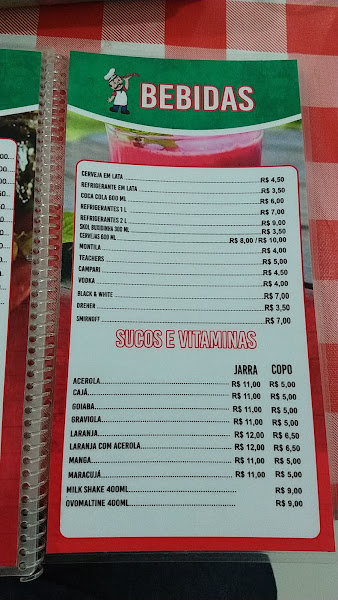 BEBIDAS
CERVEJA EM LATA R$ 4,50
REFRIGERANTE EM LATA R$ 3,50
COCA COLA 600 ML R$ 6,00
REFRIGERANTES 1 L R$ 7,00
REFRIGERANTES 2 L R$ 9,00
SKOL BUDDINHA 300 ML R$ 3,50
CERVEJAS 600 ML R$ 8,00 / R$ 10,00
MONTILA R$ 4,00
TEACHERS R$ 5,00
CAMPARI R$ 4,50
VODKA R$ 4,00
BLACK & WHITE R$ 7,00
DREHER R$ 3,50
SMIRNOFF R$ 7,00
SUCOS E VITAMINAS
JARRA COPO
ACEROLA R$ 11,00 R$ 5,00
CAJÁ R$ 11,00 R$ 5,00
GOIABA R$ 11,00 R$ 5,00
GRAVIOLA R$ 11,00 R$ 5,00
LARANJA R$ 12,00 R$ 6,50
LARANJA COM ACEROLA R$ 12,00 R$ 6,50
MANGA R$ 11,00 R$ 5,00
MARACUJÁ R$ 11,00 R$ 5,00
MILK SHAKE 400ML R$ 9,00
OVOMALTINE 400ML R$ 9,00